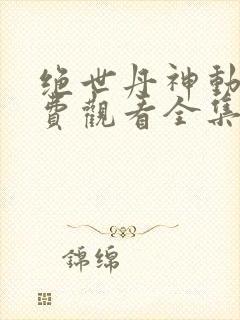 绝世丹神動
費觀看全集
錦綿